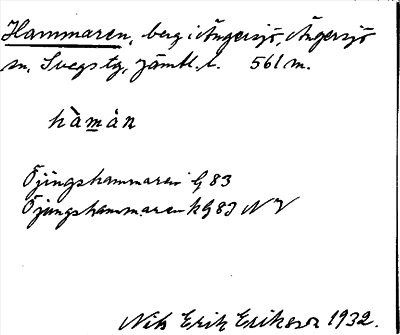 Hammaren, berg i Ängersjö, Ängersjö
sn, Svegs tg, Jämtl. l. 561 m.
hàmàn
Öjingshammaren G 83
Öjungshammaren k G 83 NV
Nils Erik Erikson 1932.